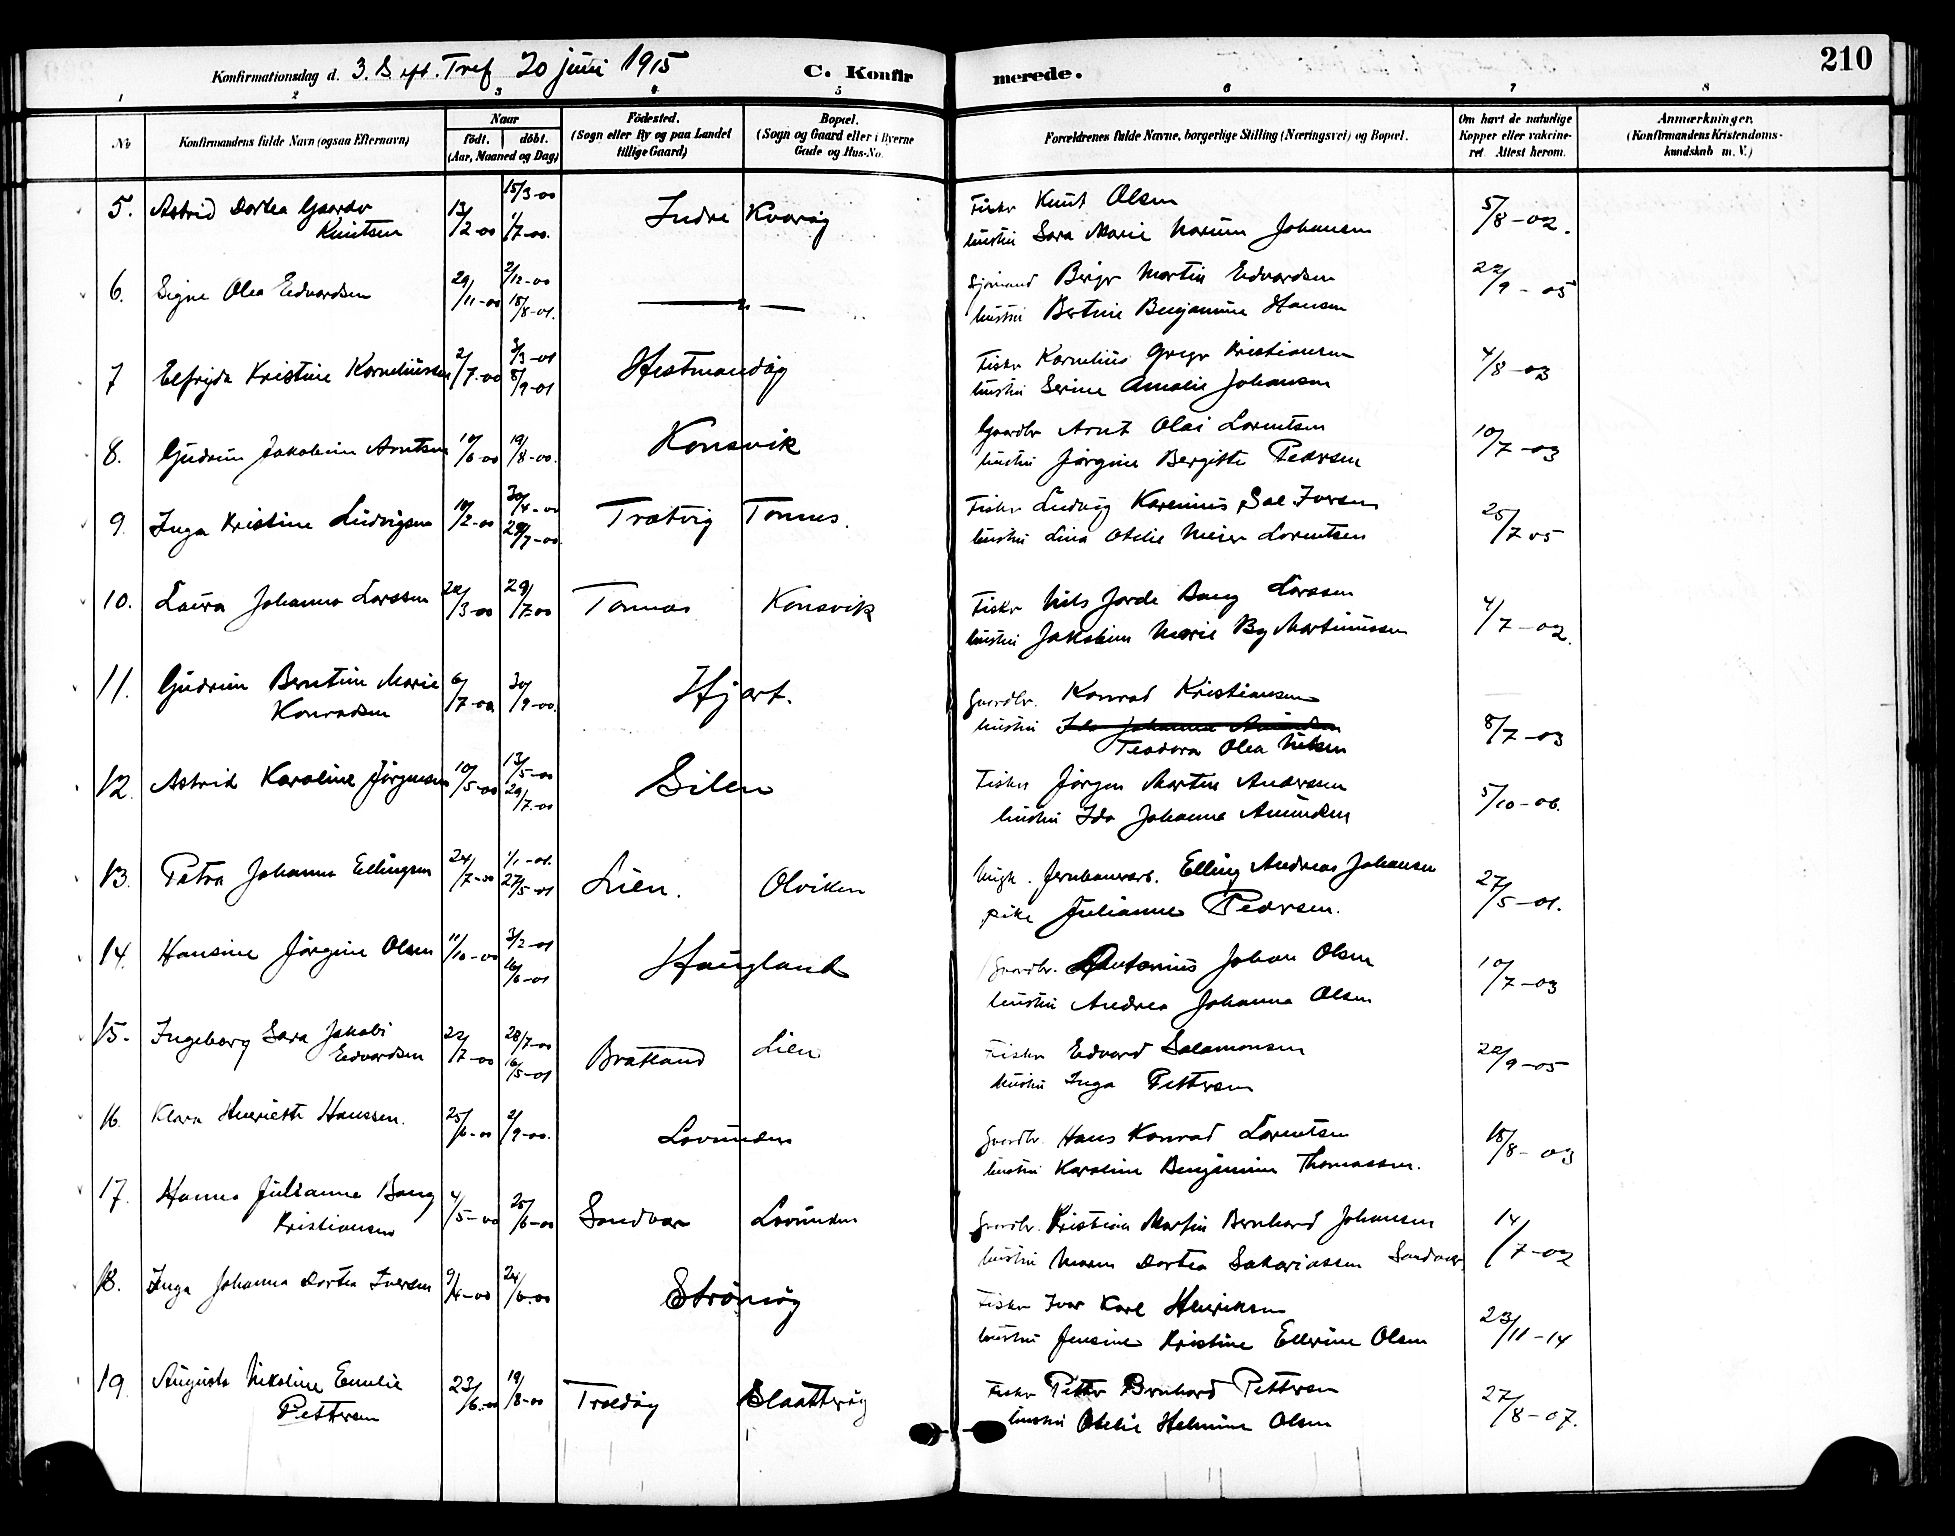 Konfirmationsdag d. 3. S. eft. Tref 20 juni 1915 C. Konfirmerede. 210
1 2 3 4 5 6 7 8
No
Konfirmandens fulde Navn (ogsaa Efternavn)
Naar
født. døbt.
(Aar, Maaned og Dag)
Fødested.
(Sogn eller By og paa Landet
tillige Gaard)
Bopæl.
(Sogn og Gaard eller i Byerne
Gade og Hus-No.
Forældrenes fulde Navne, borgerlige Stilling (Næringsvei) og Bopæl.
Om havt de naturlige
Kopper eller vakcine-
ret. Attest herom.
Anmærkninger.
(Konfirmandens Kristendoms-
kundskab m. V.)
5. Astrid Dortea 13/2-00 15/3-00 Indre Kvarøy Fisker Knut Olsen 5/8-02.
Knutsen 1/7-00. hustru Sara Marie Johansen
6. Signe Olea Edvardsen 29/11-00 2/12-00 — " — Sjømand Birger Martin Edvardsen 22/9-05
18/8-01. hustru Bertine Benjamine Hansen
7 Elfrida Kristine Korneliussen 2/7-00 3/3-01 Hestmandøy Fisker Kornelius Greger Kristiansen 4/8-03
8/9-01 hustru Serine Amalie Johansen
8. Gudrun Jakobine Arntsen 10/6-00 19/8-00. Konsvik Gaardbr Arnt Olai Lorentsen 10/7-03
hustru Jørgine Bergitte Pedersen
9. Inga Kristine Ludvigsen 18/2-00 30/4-00 Trætvig Tonnes. Fisker Ludvig Karenius Sae Iversen 25/7 05
29/7-00. hustru Lina Otelie Meier Lorentsen
10. Laura Johanna Larssen 22/3-00 29/7-00 Tonnes Konsvik Fisker Nils Jorde Bang Larssen 4/7-02.
hustru Jakobine Marie By Martinussen
11. Gudrun Berntine Marie 6/7-00. 30/9-00. Hjart. Gaardbr. Konrad Kristiansen
Konradsen hustru Ida Johanna Amundsen 8/7-03
Teodora Olea Nilsen
12. Astrid Karoline Jørgensen 10/5-00 13/5-00 Silen Fisker Jørgen Martin Andersen 5/10-06.
29/7-00 hustru Ida Johanna Amundsen
13. Petra Johanna Ellingsen 24/7-00 1/1-01. Lien. Olviken Ungk. Jernbanearb. Elling Andreas Johansen 27/5-01.
27/5-01 pike Julianne Pedersen.
14. Hansine Jørgine Olsen 11/10-00 3/2-01 Haugland Gaardbr. Antonius Johan Olsen 10/7-03
16/6-01 hustru Andrea Johanna Olsen
15. Ingeborg Sara Jakobi 22/7-00 28/7-00 Bratland Lien Fisker Edvard Salamonsen 22/9-05
Edvardsen 16/5-01 hustru Inga Pettersen
16. Klara Henriette Hanssen. 25/6-00 2/9-00. Lovunden Gaardbr. Hans Konrad Lorentsen 18/8-03
hustru Karoline Benjamine Thomassen.
17. Hanna Julianna Bang 4/5-00 25/6-00 Sandver Lovunden Gaardbr. Kristian Martin Bernhard Johansen 14/7-02
Kristiansen hustru Maren Dortea Sakariassen Sandver.
18. Inga Johanna Dortea Iversen 9/4-00 24/6-00 Strømøy Fisker Ivar Karl Henriksen 23/11-14
hustru Jensine Kristine Ellerine Olsen
19 Augusta Nikoline Emilie 23/6-00 19/8-00 Træløy Slaatterøy Fisker Petter Bernhard Pettersen 27/8-07.
Pettersen hustru Otelie Helmine Olsen